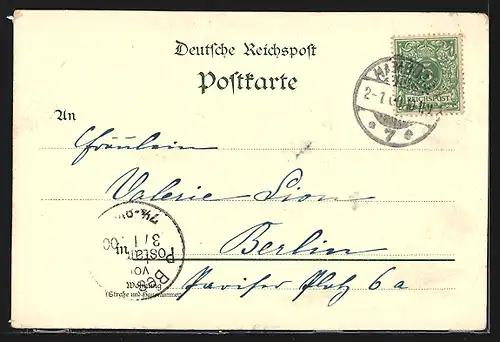 Deutsche Reichspost
Postkarte
HAMBURG
5
REICHSPOST
2-1 00
* 7 *
An
Fräulein
Valerie Lion
Berlin
Pariser Platz 6a
Wohnung
(Straße und Hausnummer)
3/1 00